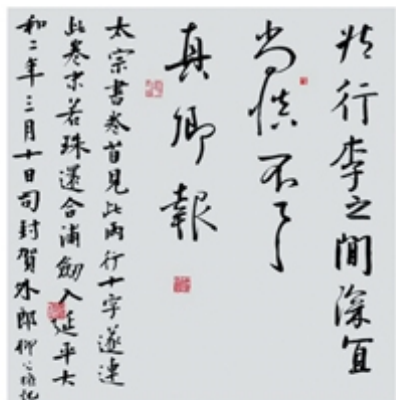 然行李之間深宜
尚慎不了
真卿報
太宗書卷首見此兩行十字遂連
此卷末若珠還合浦劍入延平大
和二年三月十日司封員外郎柳公權記